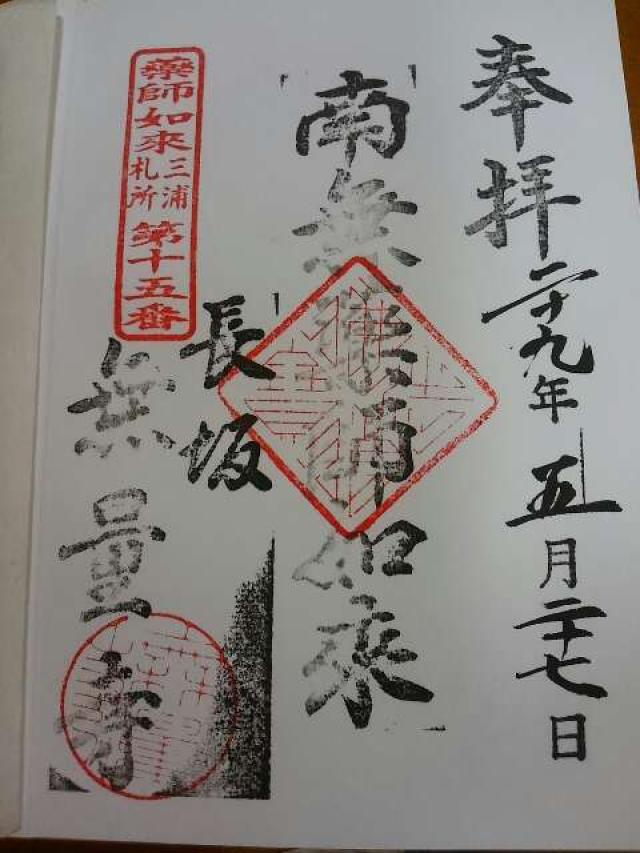 奉拝
二十九年 五月二十七日
南無薬師如来
長坂
薬師如来
三浦
札所
第十五番
無量寺